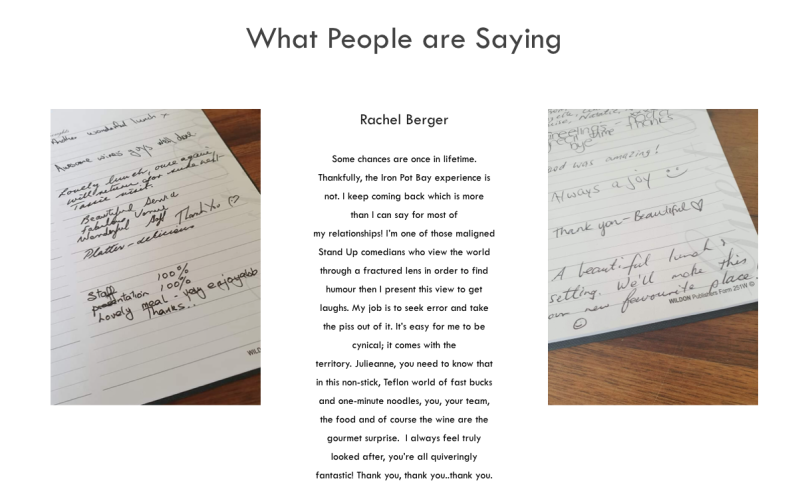 What People are Saying
Another wonderful lunch x
Awesome wines guys well done
Lovely lunch, once again,
will return for sure next
Tassie visit.
Beautiful Service
Fabulous Venue
Wonderful Staff Thank You ♡
Platter - delicious
Staff 100%
presentation 100%
Lovely meal - very enjoyable
Thanks..
Rachel Berger
Some chances are once in lifetime.
Thankfully, the Iron Pot Bay experience is
not. I keep coming back which is more
than I can say for most of
my relationships! I'm one of those maligned
Stand Up comedians who view the world
through a fractured lens in order to find
humour then I present this view to get
laughs. My job is to seek error and take
the piss out of it. It's easy for me to be
cynical; it comes with the
territory. Julieanne, you need to know that
in this non-stick, Teflon world of fast bucks
and one-minute noodles, you, your team,
the food and of course the wine are the
gourmet surprise.  I always feel truly
looked after, you're all quiveringly
fantastic! Thank you, thank you..thank you.
Thanks
bye
was amazing!
Always a joy
Thank you - Beautiful ♡
A beautiful lunch &
setting. We'll make this
our new favourite place!
WILDON Publishers Form 251W ©